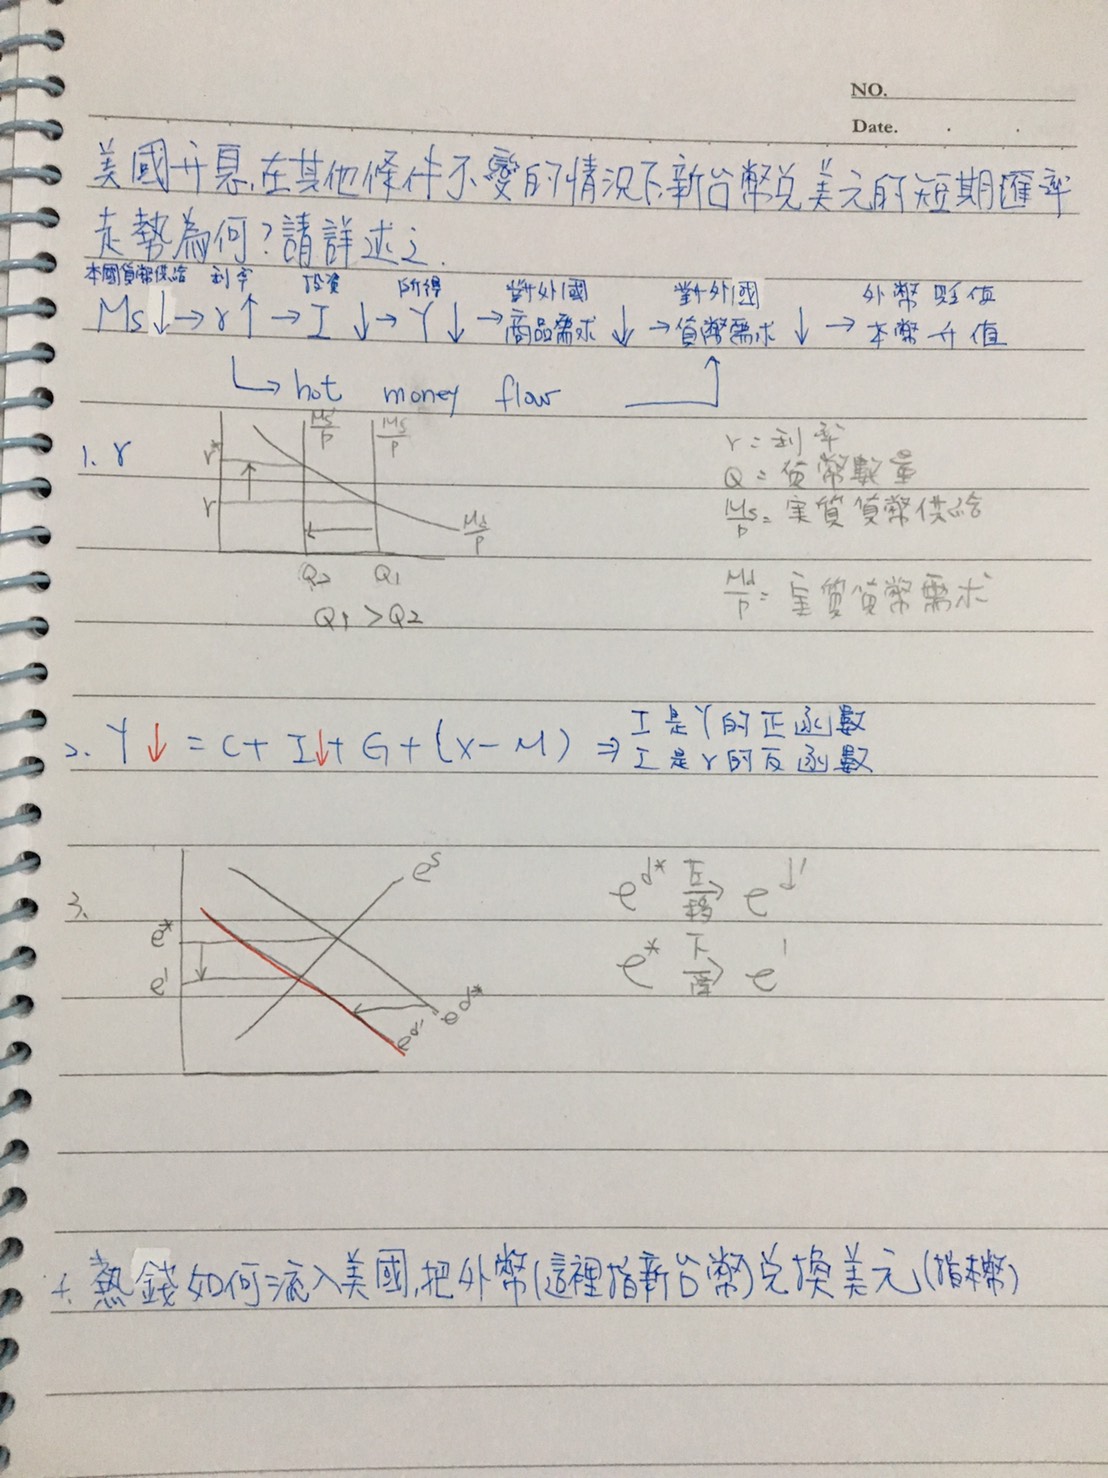 NO.
Date.
美國升息,在其他條件不變的情況下,新台幣兌美元的短期匯率
走勢為何?請詳述之.
本國貨幣供給 利率 投資 所得 對外國 對外國 外幣貶值
Ms↓→r↑→I↓→Y↓→商品需求↓→貨幣需求↓→本幣升值
hot money flow
1. r
Ms'/P Ms/P
r*
r
Md/P
Q2 Q1
Q1>Q2
r=利率
Q=貨幣數量
Ms/P=實質貨幣供給
Md/P=實質貨幣需求
2. Y↓=C+I↓+G+(X-M)⇒I是Y的正函數
I是r的反函數
3.
e^s
e*
e'
e^d'
e^d*
e^d* 左移→ e^d'
e* 下降→ e'
4. 熱錢如何流入美國,把外幣(這裡指新台幣)兌換美元(指本幣)